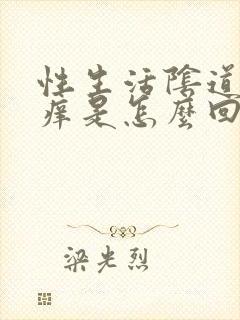 性生活陰道
痒是怎麼回
梁光烈